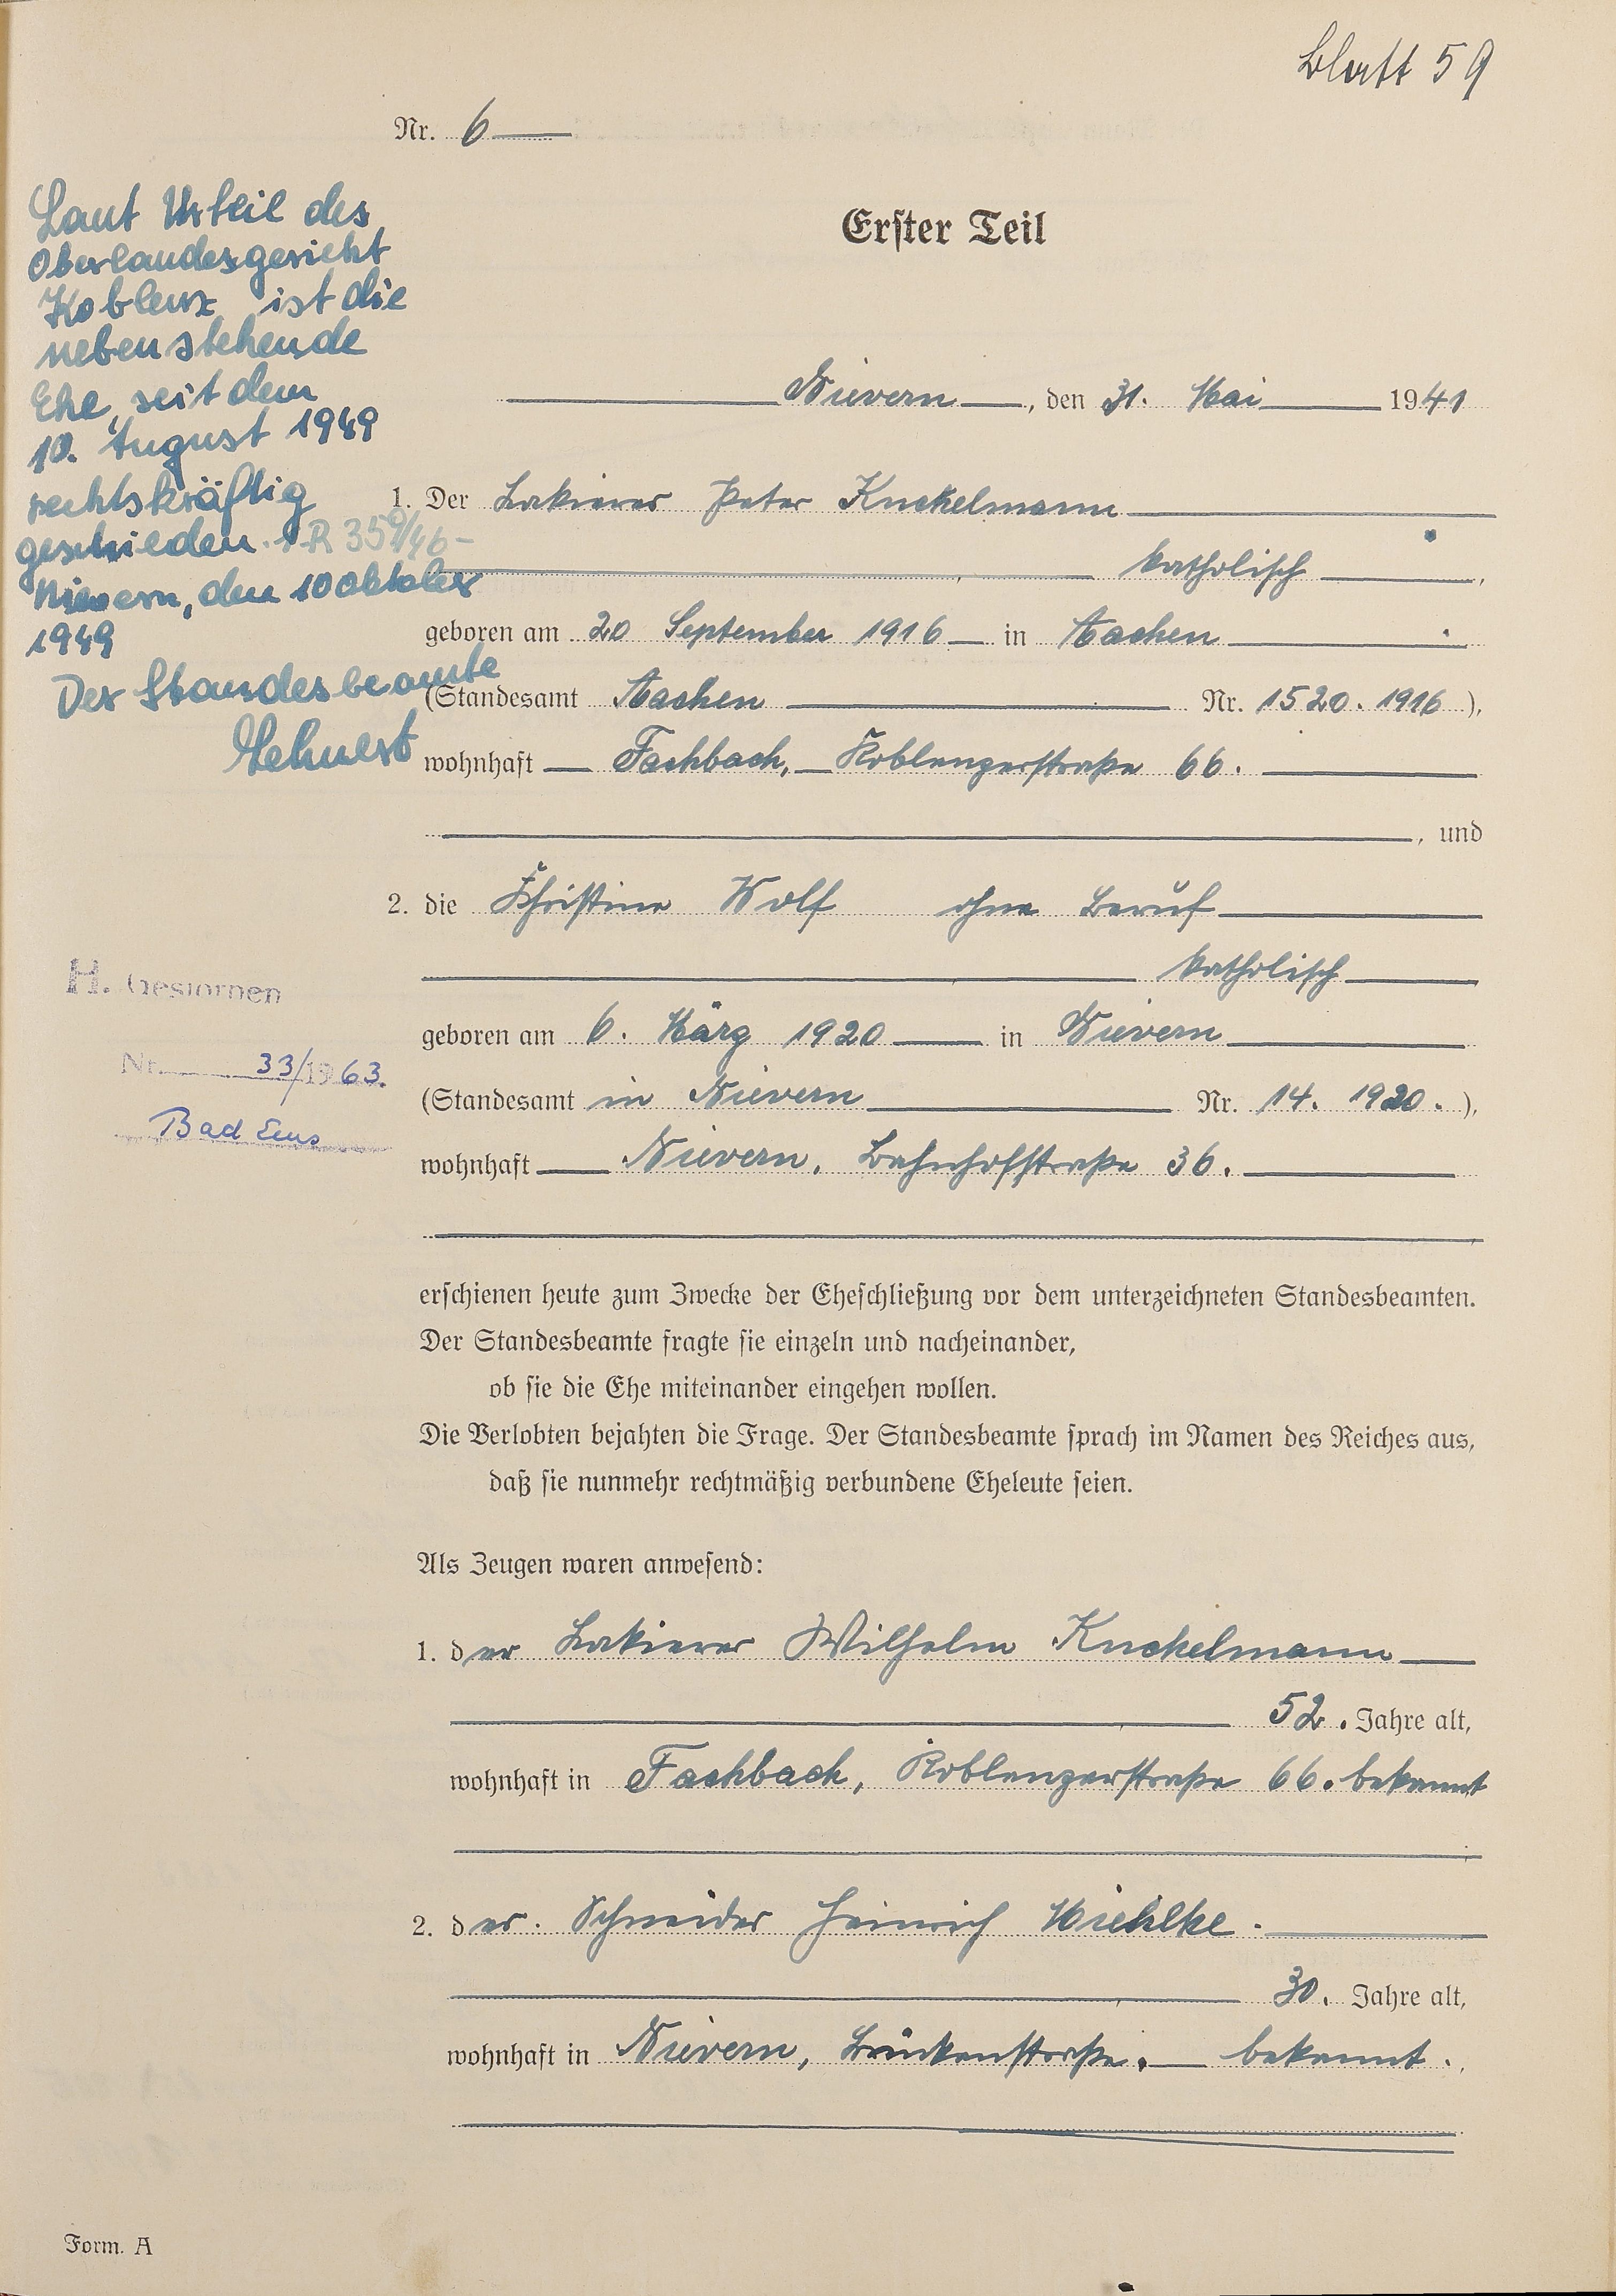 Blatt 59
Nr. 6
Erster Teil
Laut Urteil des
Oberlandesgericht
Koblenz ist die
nebenstehende
Ehe, seit dem
10. August 1949
rechtskräftig
geschieden. R 359/46-
Nievern, den 10 Oktober
1949
Der Standesbeamte
Nievern, den 31. Mai 1941
1. Der Lakierer Peter Knekelmann
katholisch,
geboren am 20 September 1916 in Aachen
(Standesamt Aachen Nr. 1520. 1916),
wohnhaft Fachbach, Koblenzerstraße 66.
, und
2. die Christine Wolf ohne Beruf
katholisch
geboren am 6. März 1920 in Nievern
(Standesamt in Nievern Nr. 14. 1920.),
wohnhaft Nievern, Bahnhofstraße 36.
H. Gestorben
Nr. 33/1963.
Bad Ems
erschienen heute zum Zwecke der Eheschließung vor dem unterzeichneten Standesbeamten.
Der Standesbeamte fragte sie einzeln und nacheinander,
ob sie die Ehe miteinander eingehen wollen.
Die Verlobten bejahten die Frage. Der Standesbeamte sprach im Namen des Reiches aus,
daß sie nunmehr rechtmäßig verbundene Eheleute seien.
Als Zeugen waren anwesend:
1. der Lakierer Wilhelm Knekelmann
52. Jahre alt,
wohnhaft in Fachbach, Koblenzerstraße 66. bekannt
2. der. Schneider Heinrich
30. Jahre alt,
wohnhaft in Nievern, Brückenstraße. bekannt.
Form. A